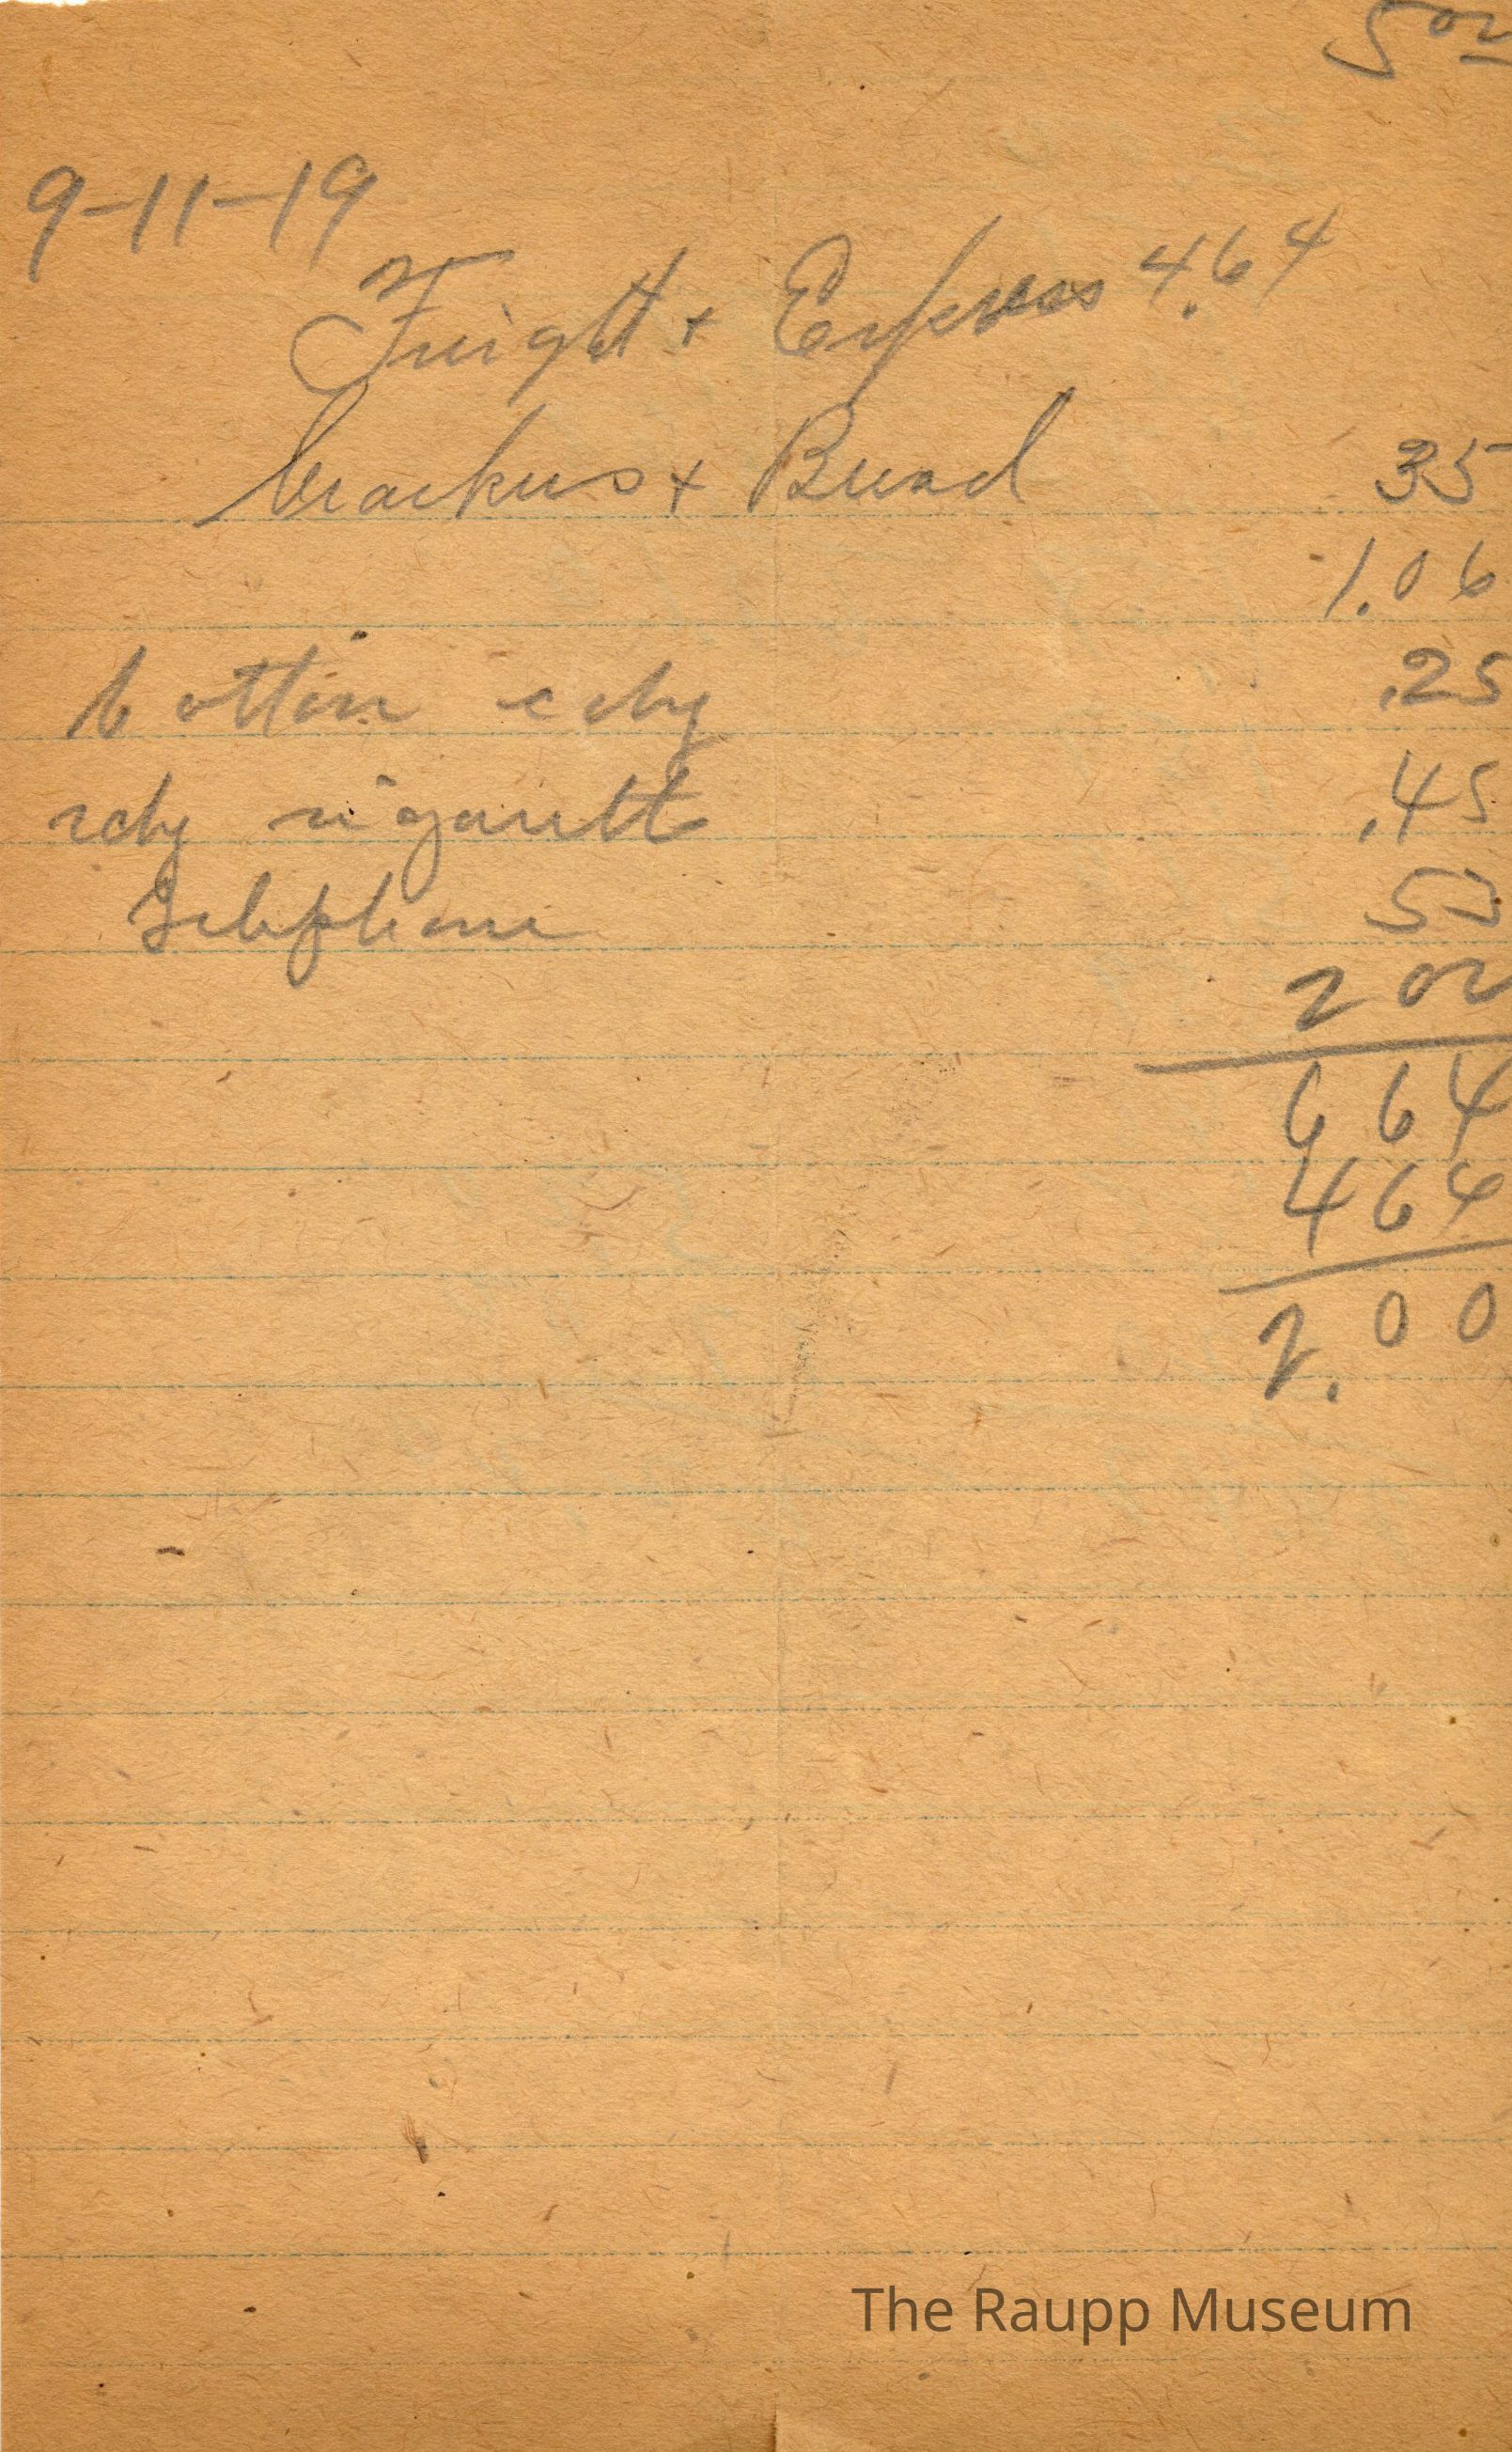 500
9-11-19
Freight + Express 4.64
Crackers + Bread 35
1.06
Cotton cdy .25
cdy cigarett .45
Telephone 55
200
664
464
2.00
The Raupp Museum